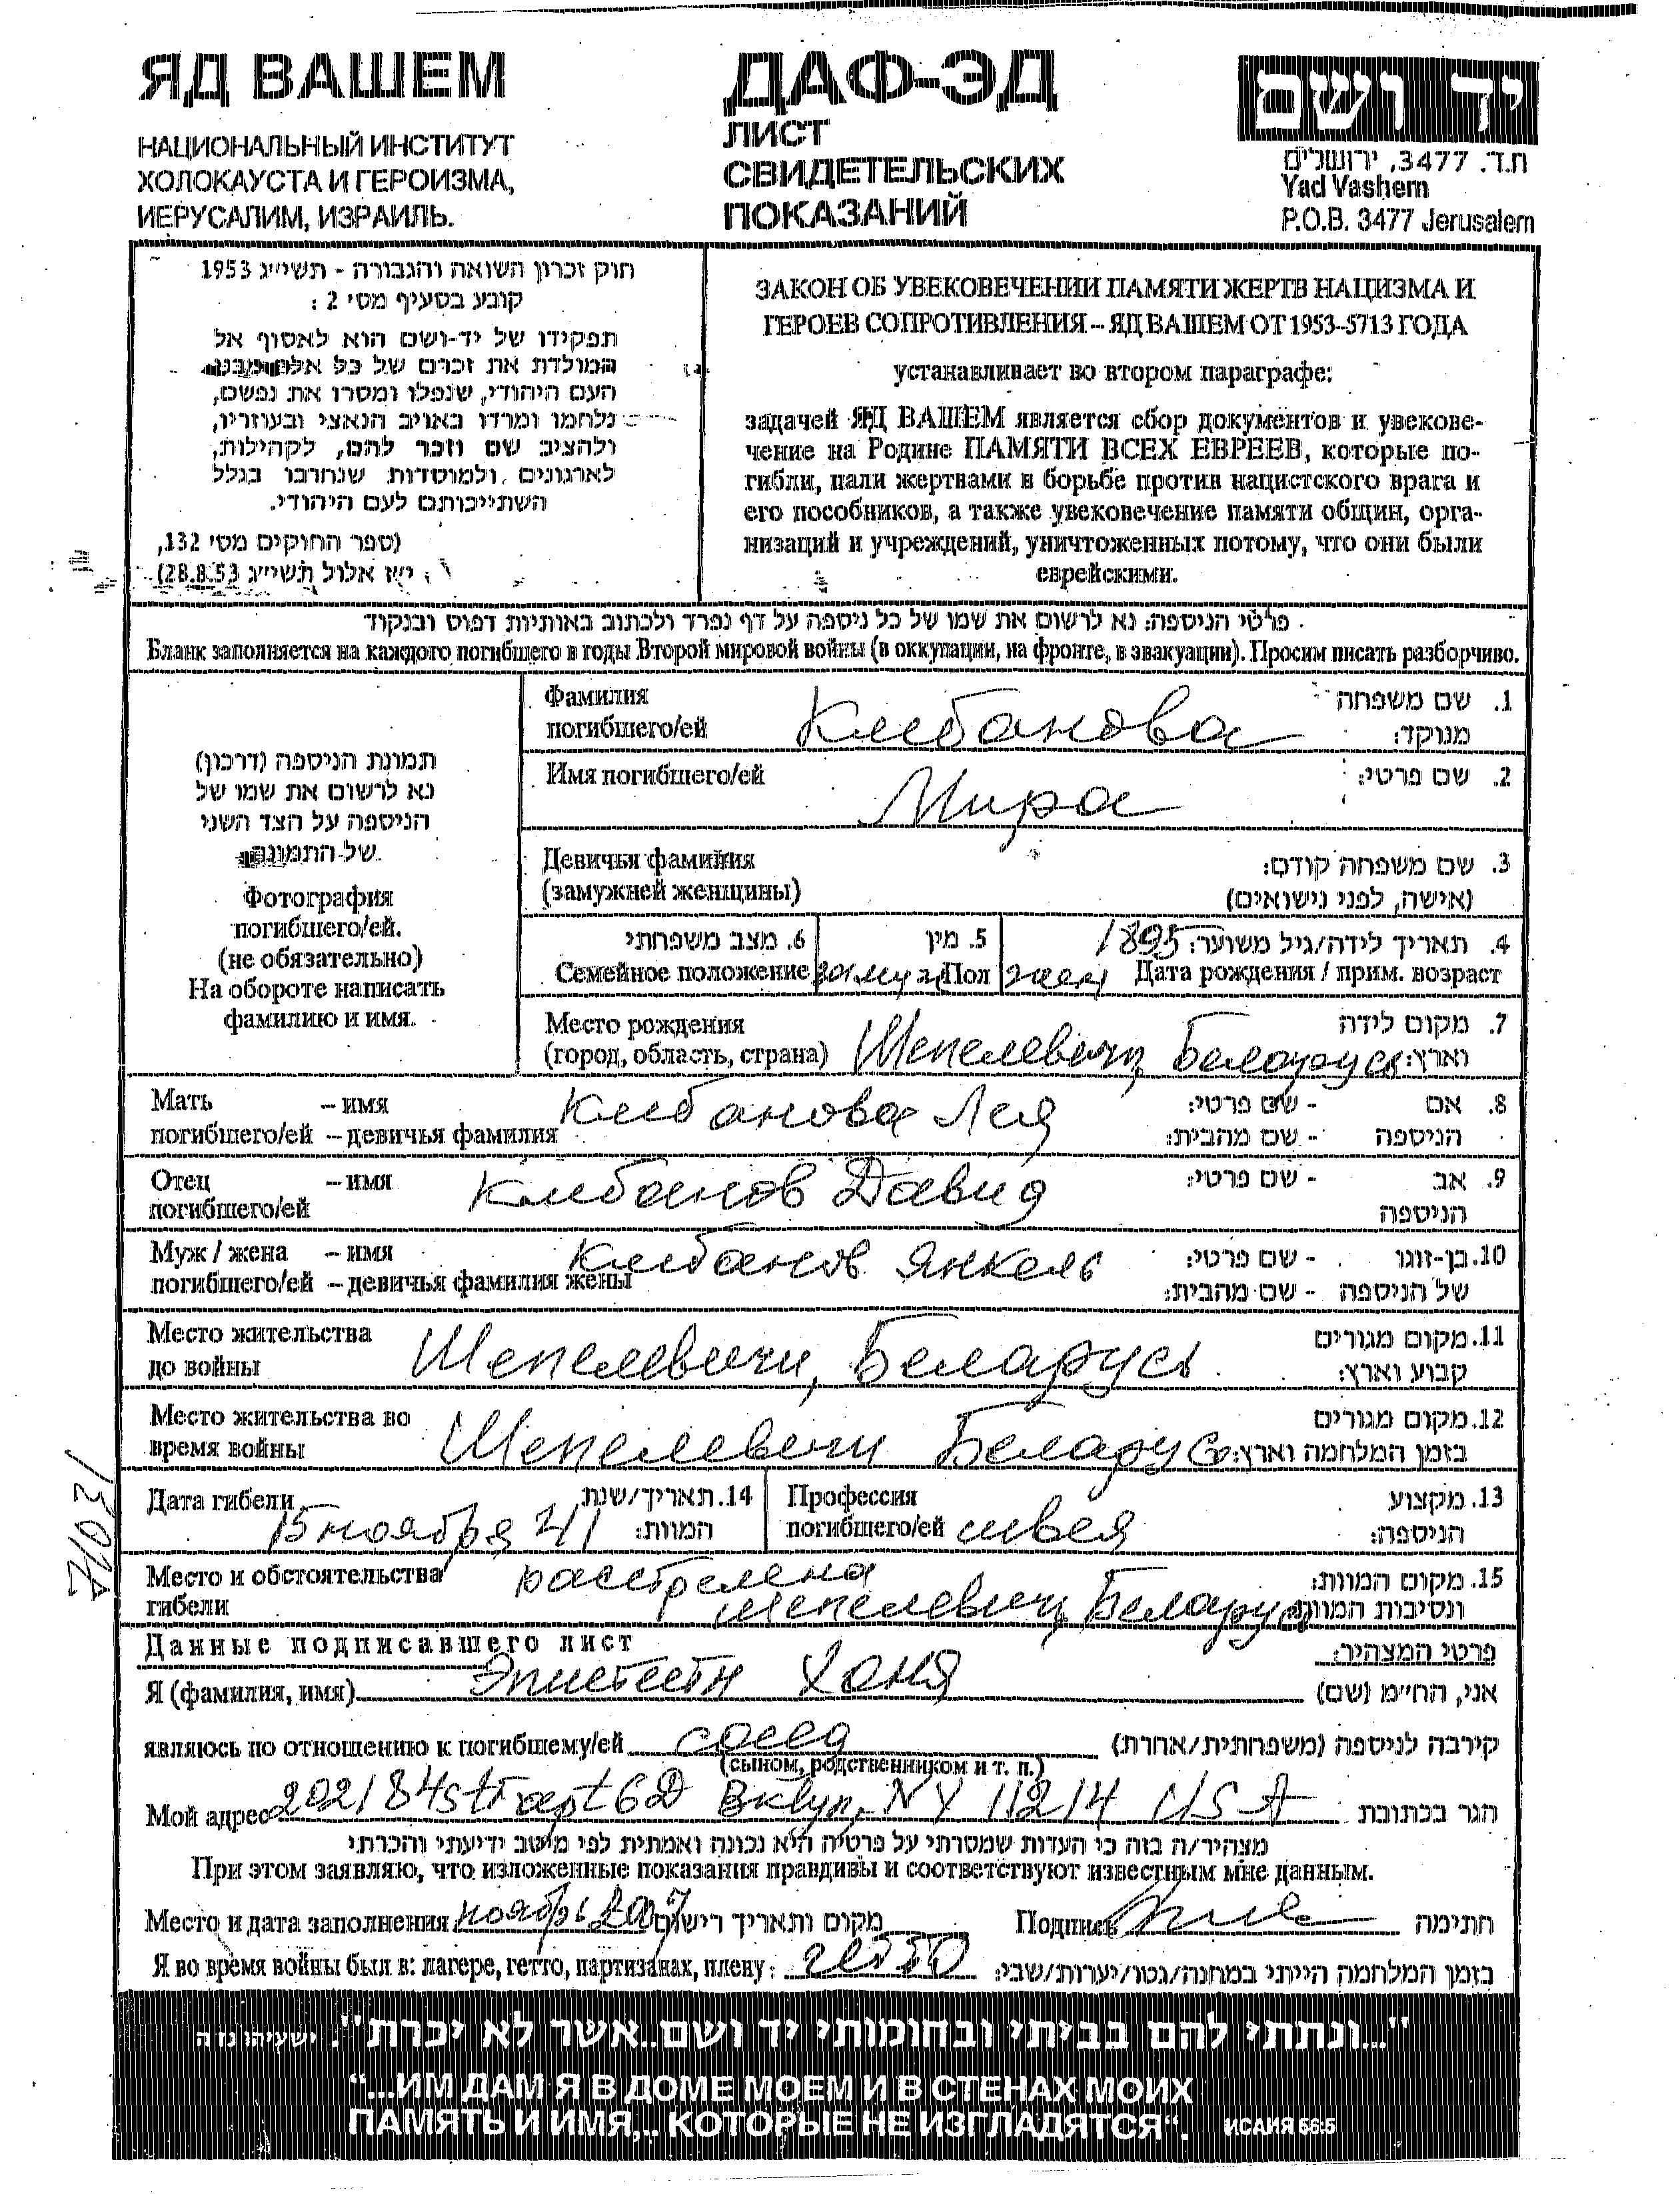 ЯД ВАШЕМ
НАЦИОНАЛЬНЫЙ ИНСТИТУТ
ХОЛОКАУСТА И ГЕРОИЗМА,
ИЕРУСАЛИМ, ИЗРАИЛЬ.
ДАФ-ЭД
ЛИСТ
СВИДЕТЕЛЬСКИХ
ПОКАЗАНИЙ
יד ושם
ת.ד. 3477, ירושלים
Yad Vashem
P.O.B. 3477 Jerusalem
חוק זכרון השואה והגבורה - תשי״ג 1953
קובע בסעיף מס׳ 2 :
תפקידו של יד-ושם הוא לאסוף אל
המולדת את זכרם של כל אלה מבני
העם היהודי, שנפלו ומסרו את נפשם,
נלחמו ומרדו באויב הנאצי ובעוזריו,
ולהציב שם וזכר להם, לקהילות,
לארגונים ולמוסדות שנחרבו בגלל
השתייכותם לעם היהודי.
(ספר החוקים מס׳ 132,
י״ז אלול תשי״ג 28.8.53)
ЗАКОН ОБ УВЕКОВЕЧЕНИИ ПАМЯТИ ЖЕРТВ НАЦИЗМА И
ГЕРОЕВ СОПРОТИВЛЕНИЯ – ЯД ВАШЕМ ОТ 1953–5713 ГОДА
устанавливает во втором параграфе:
задачей ЯД ВАШЕМ является сбор документов и увекове-
чение на Родине ПАМЯТИ ВСЕХ ЕВРЕЕВ, которые по-
гибли, пали жертвами в борьбе против нацистского врага и
его пособников, а также увековечение памяти общин, орга-
низаций и учреждений, уничтоженных потому, что они были
еврейскими.
פרטי הניספה: נא לרשום את שמו של כל ניספה על דף נפרד ולכתוב באותיות דפוס ובנקוד
Бланк заполняется на каждого погибшего в годы Второй мировой войны (в оккупации, на фронте, в эвакуации). Просим писать разборчиво.
תמונת הניספה (דרכון)
נא לרשום את שמו של
הניספה על הצד השני
של התמונה
Фотография
погибшего/ей.
(не обязательно)
На обороте написать
фамилию и имя.
Фамилия
погибшего/ей Клибанова
1. שם משפחה
מנוקד:
Имя погибшего/ей Мира 2. שם פרטי:
Девичья фамилия
(замужней женщины)
3. שם משפחה קודם:
(אישה, לפני נישואים)
6. מצב משפחתי
Семейное положение замуж
5. מין
Пол жен
4. תאריך לידה/גיל משוער: 1895
Дата рождения / прим. возраст
Место рождения
(город, область, страна) Шепелевичи, Беларусь
7. מקום לידה
וארץ:
Мать – имя Клибанова Лея
погибшего/ей – девичья фамилия
8. אם - שם פרטי:
הניספה - שם מהבית:
Отец – имя Клибанов Давид
погибшего/ей
9. אב - שם פרטי:
הניספה
Муж / жена – имя Клибанов Янкель
погибшего/ей – девичья фамилия жены
10. בן-זוגו - שם פרטי:
של הניספה - שם מהבית:
Место жительства
до войны Шепелевичи, Беларусь
11. מקום מגורים
קבוע וארץ:
Место жительства во
время войны Шепелевичи Беларусь
12. מקום מגורים
בזמן המלחמה וארץ:
Дата гибели 15 ноября 41
14. תאריך/שנת
המוות:
Профессия
погибшего/ей швея
13. מקצוע
הניספה:
Место и обстоятельства расстреляна
гибели Шепелевичи, Беларусь
15. מקום המוות:
ונסיבות המוות:
Данные подписавшего лист פרטי המצהיר:
Я (фамилия, имя) Эпштейн Ханя אני, הח״מ (שם)
являюсь по отношению к погибшему/ей сосед קירבה לניספה (משפחתית/אחרת)
(сыном, родственником и т. п.)
Мой адрес 2021 84 st apt 6D Bklyn, NY 11214 USA הגר בכתובת
מצהיר/ה בזה כי העדות שמסרתי על פרטיה היא נכונה ואמתית לפי מיטב ידיעתי והכרתי
При этом заявляю, что изложенные показания правдивы и соответствуют известным мне данным.
Место и дата заполнения ноябрь מקום ותאריך רישום Подпись חתימה
Я во время войны был в: лагере, гетто, партизанах, плену: гетто בזמן המלחמה הייתי במחנה/גטו/יערות/שבי:
"...ונתתי להם בביתי ובחומותי יד ושם..אשר לא יכרת". ישעיהו נו ה
“...ИМ ДАМ Я В ДОМЕ МОЕМ И В СТЕНАХ МОИХ
ПАМЯТЬ И ИМЯ,.. КОТОРЫЕ НЕ ИЗГЛАДЯТСЯ“. ИСАИЯ 56:5